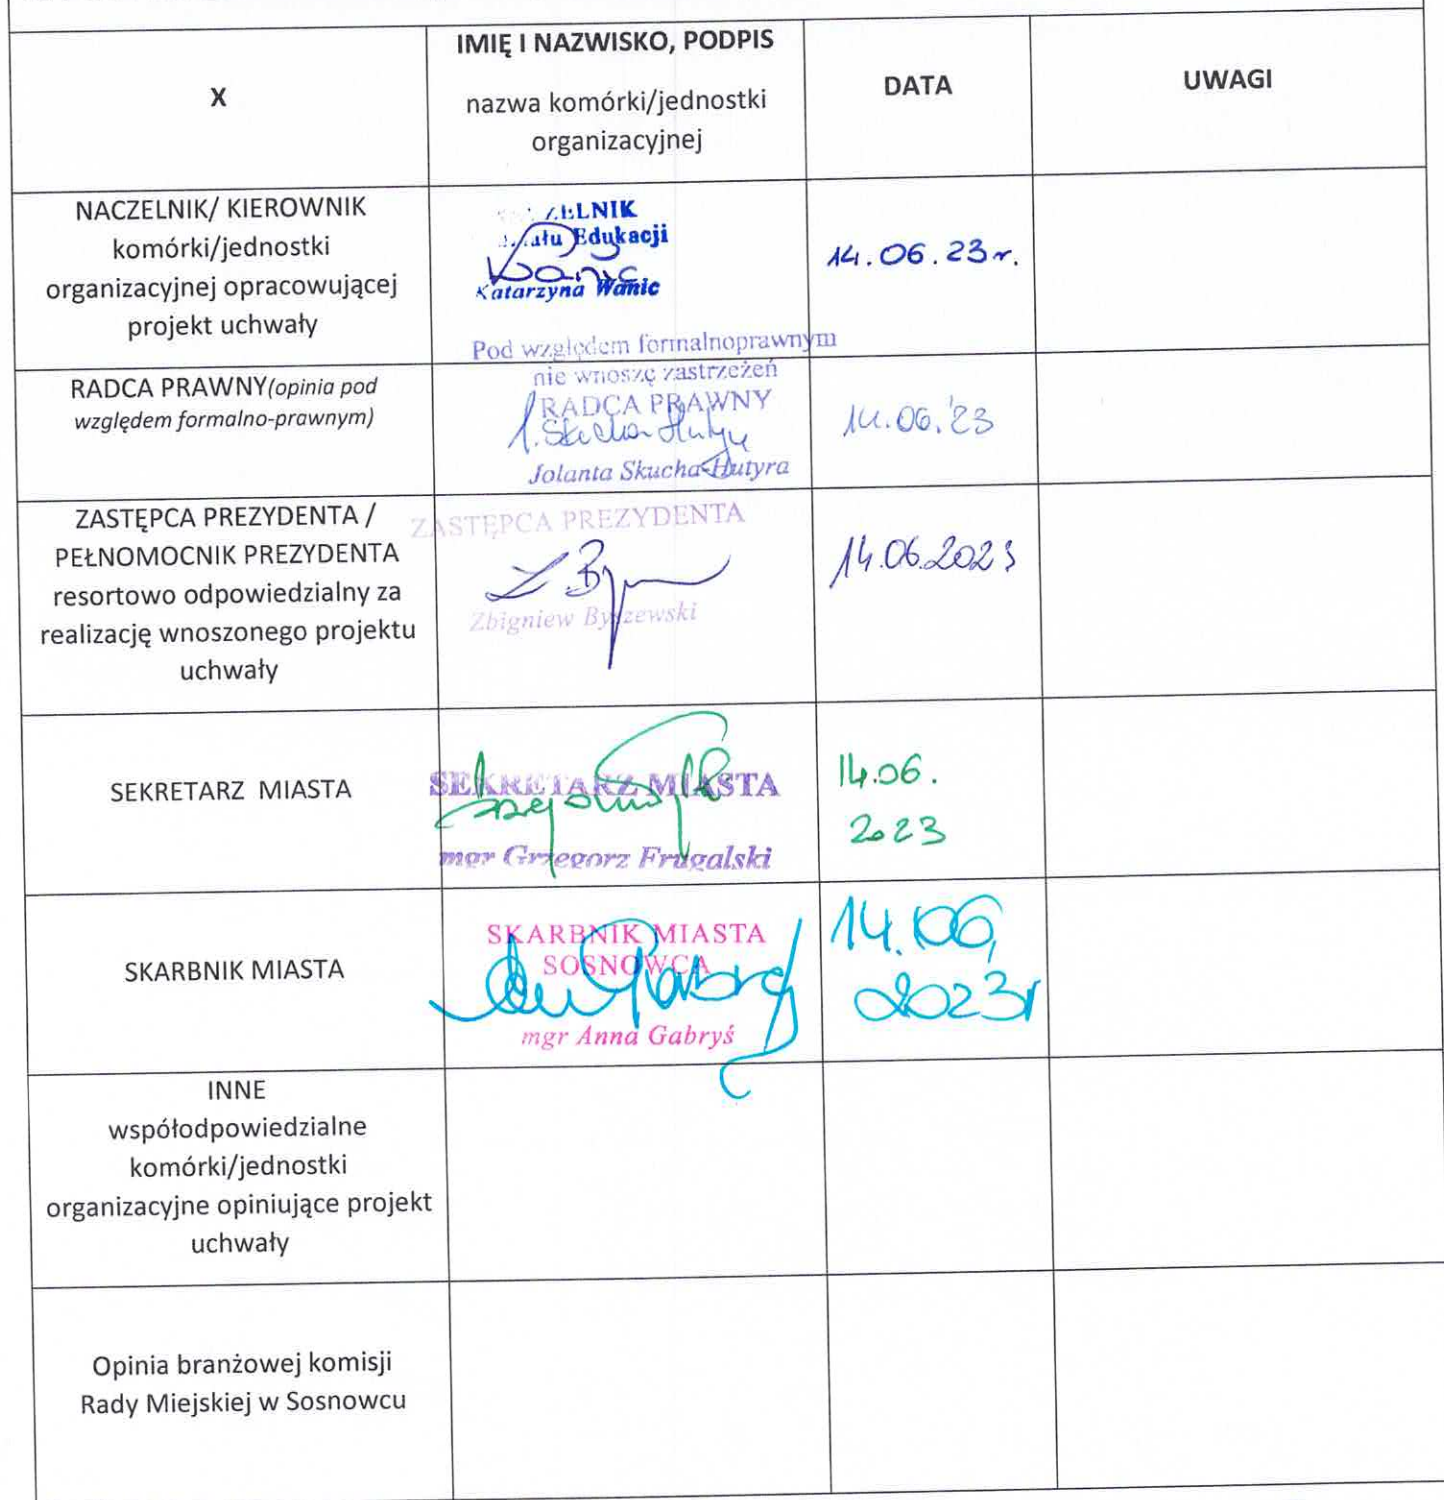 X
IMIĘ I NAZWISKO, PODPIS
nazwa komórki/jednostki
organizacyjnej
DATA
UWAGI
NACZELNIK/ KIEROWNIK
komórki/jednostki
organizacyjnej opracowującej
projekt uchwały
Edukacji
Katarzyna Wanic
14.06.23r.
RADCA PRAWNY(opinia pod
względem formalno-prawnym)
Pod względem formalnoprawnym
nie wnoszę zastrzeżeń
RADCA PRAWNY
Jolanta Skucha-Hutyra
14.06.'23
ZASTĘPCA PREZYDENTA /
PEŁNOMOCNIK PREZYDENTA
resortowo odpowiedzialny za
realizację wnoszonego projektu
uchwały
ZASTĘPCA PREZYDENTA
Zbigniew Byszewski
14.06.2023
SEKRETARZ MIASTA
SEKRETARZ MIASTA
mgr Grzegorz Frugalski
14.06.
2023
SKARBNIK MIASTA
SKARBNIK MIASTA
SOSNOWCA
mgr Anna Gabryś
14.06,
2023r
INNE
współodpowiedzialne
komórki/jednostki
organizacyjne opiniujące projekt
uchwały
Opinia branżowej komisji
Rady Miejskiej w Sosnowcu